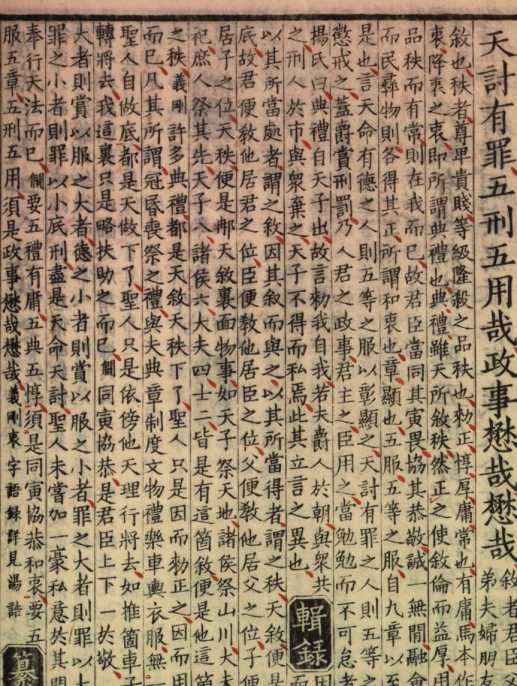 天討有罪五刑五用哉政事懋哉懋哉
敘者君臣父
弟夫婦朋友
敘也秩者尊卑貴賤等級隆殺之品秩也勑正惇厚庸常也有庸馬本作
衷降衷之衷即所謂典禮也典禮雖天所敘秩然正之使敘倫而益厚用
品秩而有常則在我而已故君臣當同其寅畏協其恭敬誠一無間融會
而民彝物則各得其正所謂和衷也章顯也五服五等之服自九章以至
是也言天命有德之人則五等之服以彰顯之天討有罪之人則五等之
懲戒之蓋爵賞刑罰乃人君之政事君主之臣用之當勉勉而不可怠者
揚氏曰典禮自天子出故言勑我自我若夫爵人於朝與衆共
之刑人於市與衆棄之天子不得而私焉此其立言之異也
輯錄
以其所當處者謂之敘因其敘而與之以其所當得者謂之秩天敘便是
底故君便敎他居君之位臣便敎他居臣之位父便敎他居父之位子便
居子之位天秩便是那天敘裏面物事如天子祭天地諸侯祭山川大夫
祀庶人祭其先天子八諸侯六大夫四士二皆是有這箇敘便是他這
之秩義剛許多典禮都是天敘天秩下了聖人只是因而勑正之因而用
而已凡其所謂冠昏喪祭之禮與夫典章制度文物禮樂車輿衣服無一
聖人自做底都是天做下了聖人只是依傍他天理行將去如推箇車子
轉將去我這裏只是略扶助之而已僩同寅協恭是君臣上下一於敬
大者則賞以服之大者德之小者則賞以服之小者罪之大者則罪以大
罪之小者則罪以小底刑盡是天命天討聖人未嘗加一豪私意於其間
奉行天法而已僩要五禮有庸五典五惇須是同寅協恭和衷要五
服五章五刑五用須是政事懋哉懋哉義剛衷字語錄詳見湯誥
纂